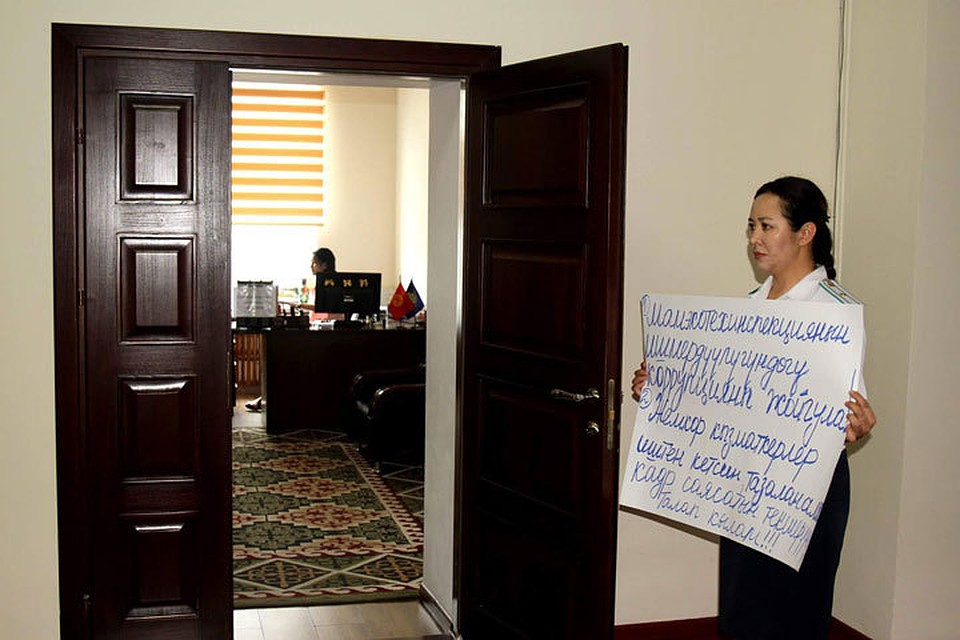 ① Мамэкотехинспекциянын
миңдердүүлүгүндөгү
коррупцияны жойгула
② Жемкор кызматкерлер
иштен кетсин тазаланат
кадр саясатын текшер
талап кылам!!!